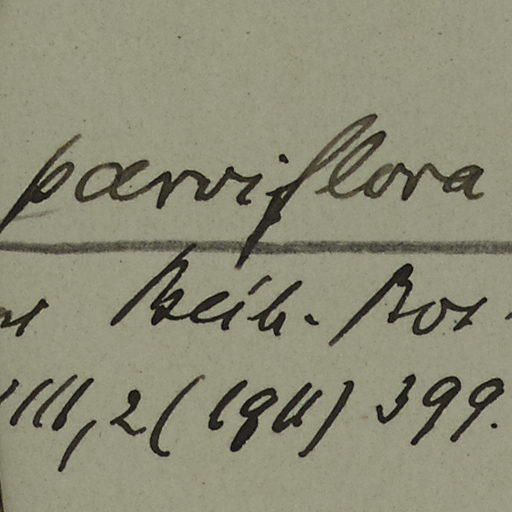 parviflora
Beih. Bot.
III, 2 (1911) 399.